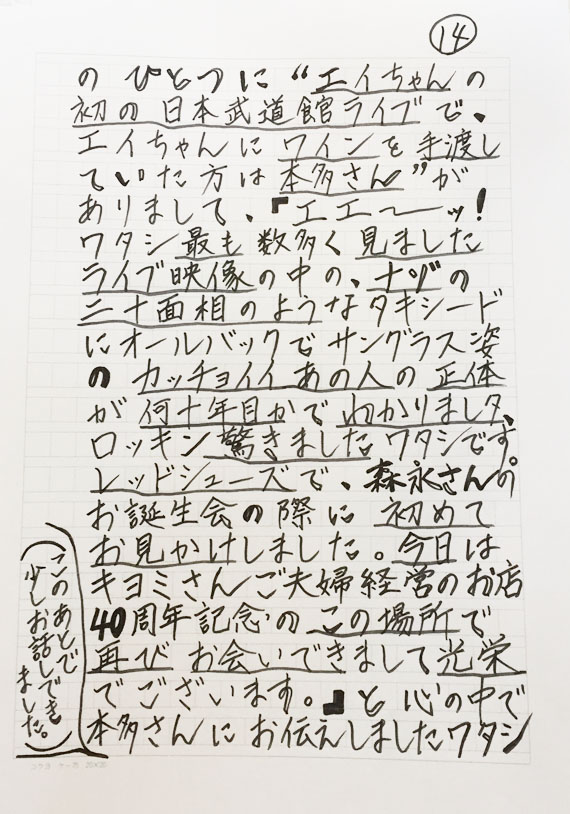 14
のひとつに“エイちゃんの
初の日本武道館ライブで、
エイちゃんにワインを手渡し
ていた方は本多さん”が
ありまして、『エエ〜ッ!
ワタシ最も数多く見ました
ライブ映像の中の、ナゾの
二十面相のようなタキシード
にオールバックでサングラス姿
のカッチョイイあの人の正体
が何十年目かでわかりました、
ロッキン驚きましたワタシです。
レッドシューズで、森永さんの
お誕生会の際に初めて
お見かけしました。今日は
キヨミさんご夫婦経営のお店
40周年記念のこの場所で
再びお会いできまして光栄
でございます。』と心の中で
本多さんにお伝えしましたワタシ
(このあとで
少しお話しでき
ました。)
コクヨ ケー70 20×20